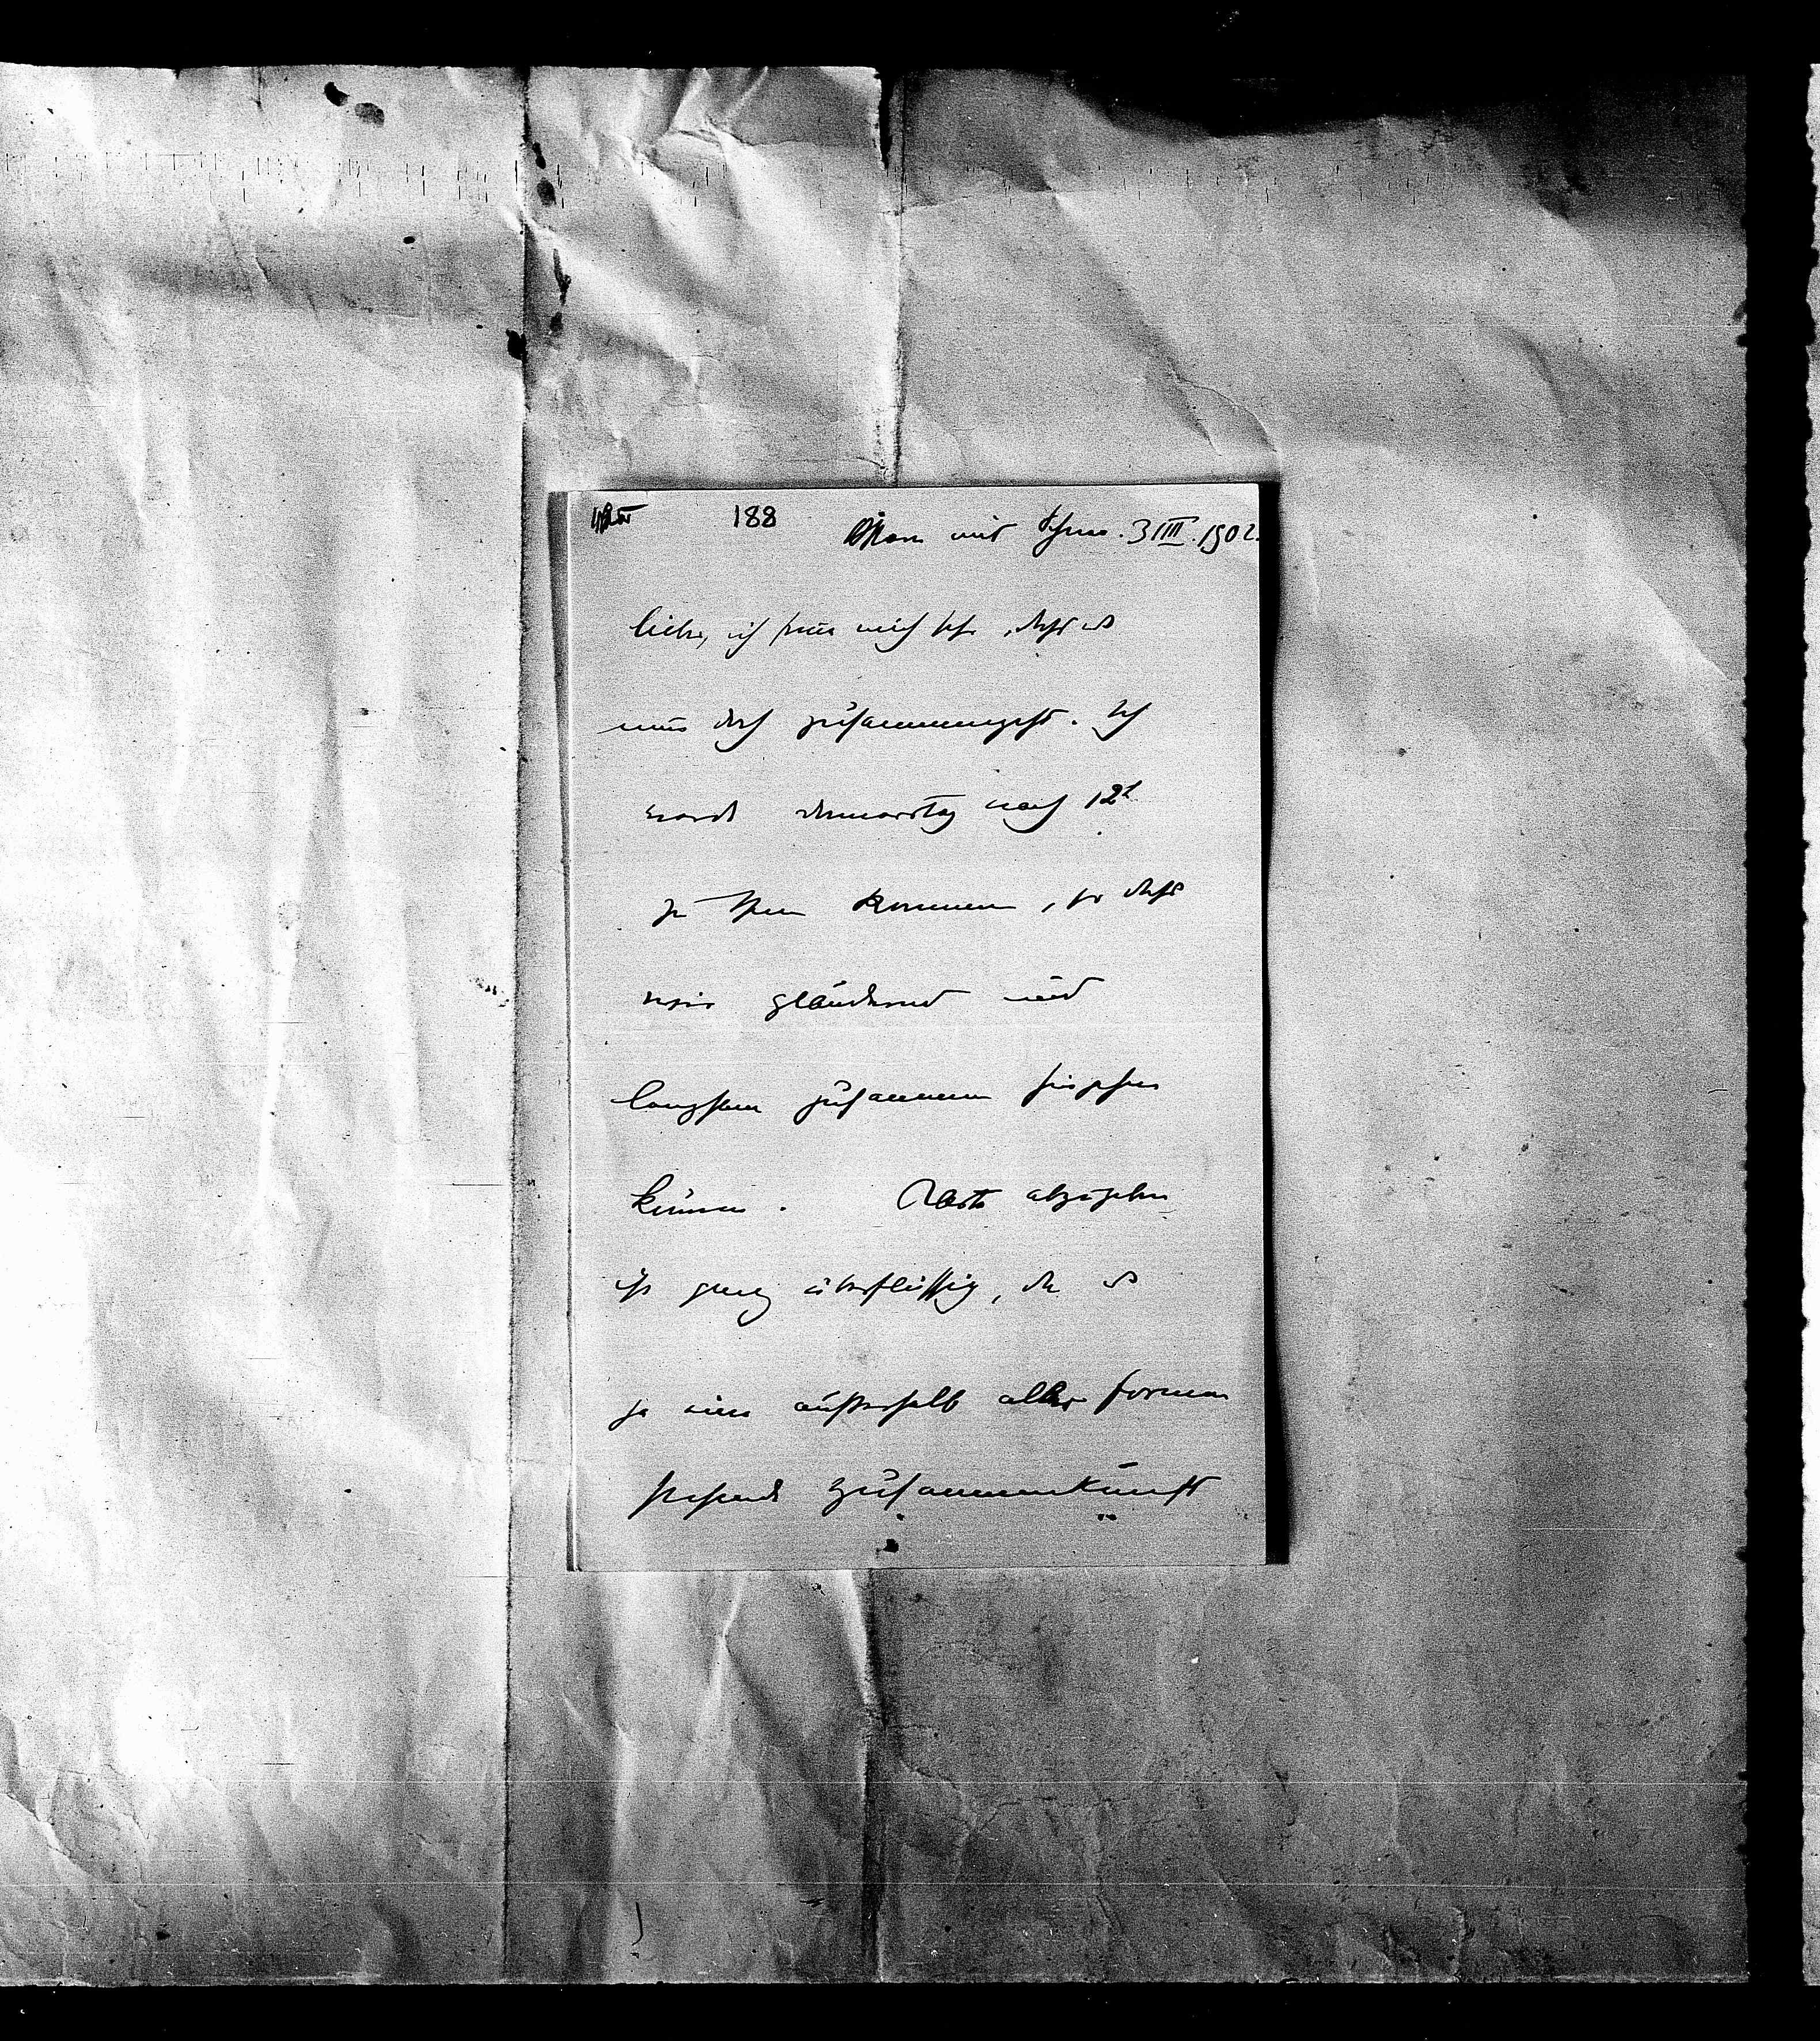 188
3 III. 1902.
lieber, ich freue mich sehr, dass es
nun doch zusammengeht. Ich
werde donnerstag nach 12h
zu Ihnen kommen, so dass
wir plaudernd und
langsam zusammen hingehen
können. Karte abzugeben
ist ganz überflüssig, da es
ja eine außerhalb aller formen
stehende Zusammenkunft